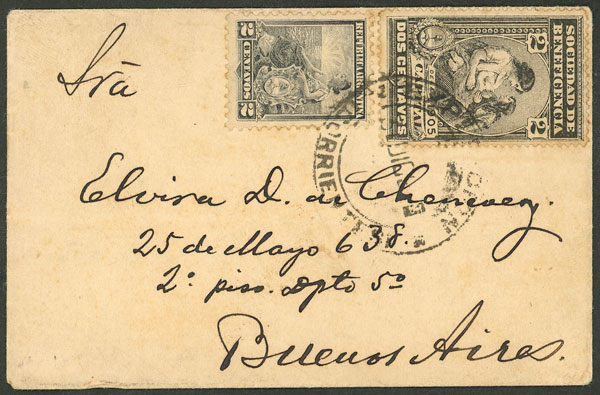 Srā
REPUBLICA ARGENTINA
2 CENTAVOS 2
SOCIEDAD DE
BENEFICENCIA
2 2
CAPITAL
DOS CENTAVOS
Elvira D. de
25 de Mayo 638.
2º piso. Dpto 5º
Buenos Aires.